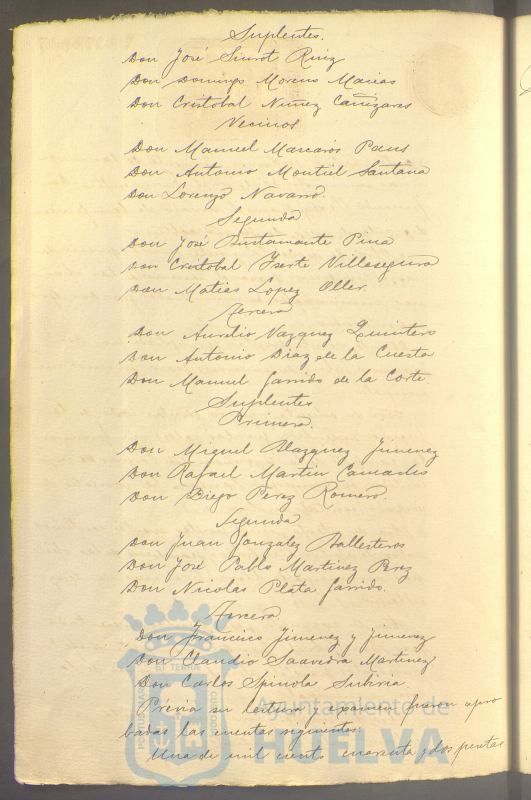 Suplentes.
Don José Siurot Ruiz
Don Domingo Moreno Macias
Don Cristobal Nuñez Cañizares
Vecinos
Don Manuel Mascaros Pons
Don Antonio Montiel Santana
Don Lorenzo Navarro.
Segunda
Don José Bustamante Pina
Don Cristobal Yserte Villasegura
Don Matias Lopez Oller.
Tercera
Don Aurelio Vazquez Quintero
Don Antonio Diaz de la Cuesta
Don Manuel Garrido de la Corte.
Suplentes
Primera.
Don Miguel Blazquez Jimenez
Don Rafael Martin
Don Diego Perez Romero.
Segunda
Don Juan Gonzalez Ballesteros
Don José Pablo Martinez Perez
Don Nicolas Plata Garrido.
Tercera
Don Francisco Jimenez y Jimenez
Don Claudio Saavedra Martinez
Don Carlos Spinola Subiria
Previa su lectura y espacio fueron apro
badas las cuentas siguientes:
Una de mil ciento cuarenta y dos pesetas
Ayuntamiento de
HUELVA